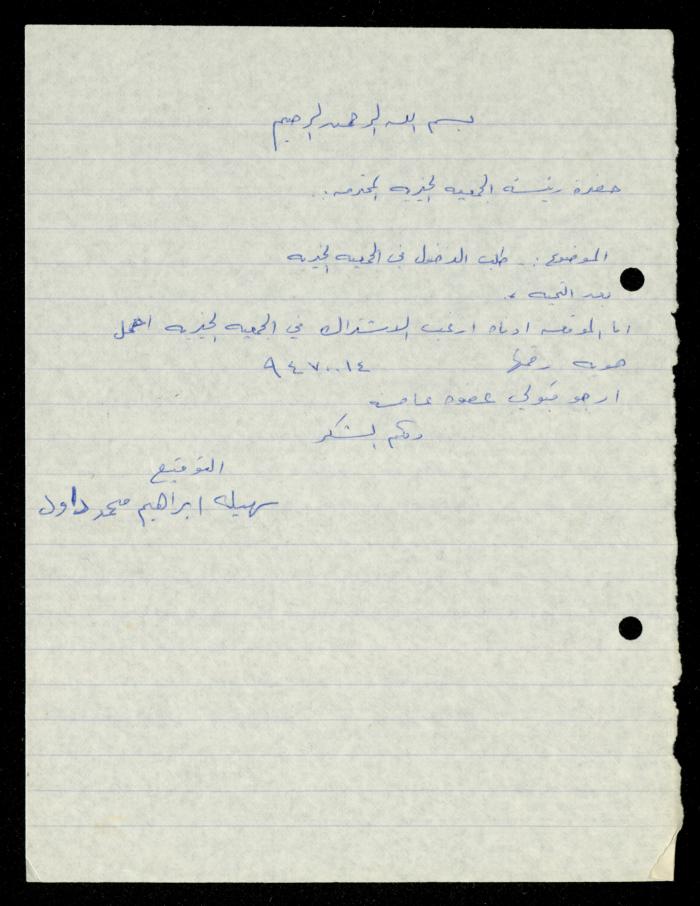 بسم الله الرحمن الرحيم
حضرة رئيسة الجمعيه الخيريه المحترمه..
الموضوع :. طلب الدخول في الجمعيه الخيريه
بعد التحيه ،،
انا الموقعه ادناه ارغب الاشتراك في الجمعيه الخيريه احمل
هويه رقمها ٩٤٧٠٠١٤
ارجو قبولي عضوه عامله
ولكم الشكر
التوقيع
سهيله ابراهيم محمد داود